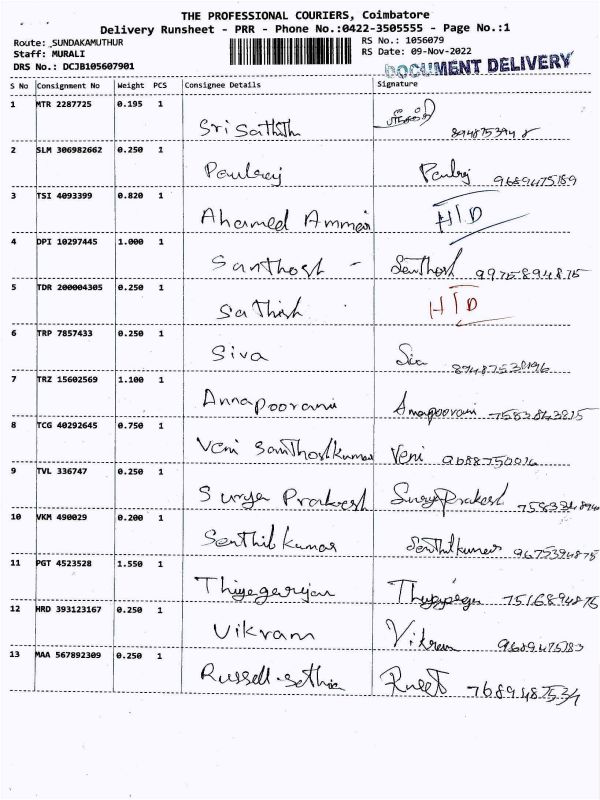 THE PROFESSIONAL COURIERS, Coimbatore
Delivery Runsheet - PRR - Phone No.:0422-3505555 - Page No.:1
Route: SUNDAKAMUTHUR RS No.: 1056079
Staff: MURALI RS Date: 09-Nov-2022
DRS No.: DCJB105607901 DOCUMENT DELIVERY
S No Consignment No Weight PCS Consignee Details Signature
1 MTR 2287725 0.195 1
Sri Sathish
2 SLM 306982662 0.250 1
Poulraj Poulraj 9689475189
3 TSI 4093399 0.820 1
Ahamed Ammar HTD
4 DPI 10297445 1.000 1
Santhosh - Santhosh 9975894875
5 TDR 200004305 0.250 1
Sathish HTD
6 TRP 7857433 0.250 1
Siva Sia
7 TRZ 15602569 1.100 1
Annapoorani Annapoorani
8 TCG 40292645 0.750 1
Veni Santhoshkumar Veni
9 TVL 336747 0.250 1
Surya Prakash Surya Prakash
10 VKM 490029 0.200 1
Senthil kumar Senthilkumar 9675394875
11 PGT 4523528 1.550 1
Thiyegarajan 7516894875
12 HRD 393123167 0.250 1
Vikram Vikram
13 MAA 567892309 0.250 1
Russell-Sethia 7689487534